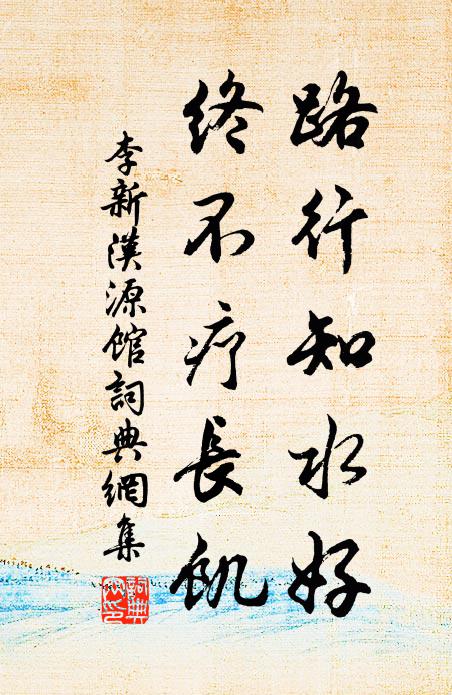 路行知水好
終不疗長飢
李新漢源館詞典網集
詞典